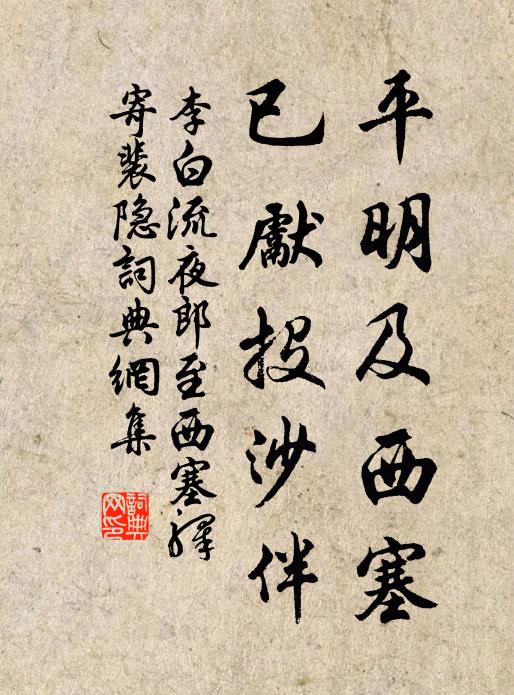 平明及西塞
已獻投沙伴
李白流夜郎至西塞驛
寄裴隐詞典網集
詞典網印